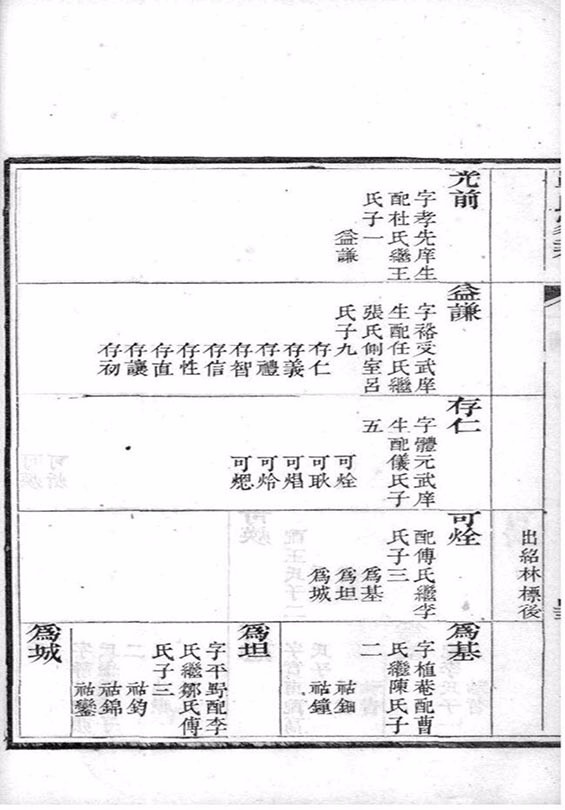 出紹林標後
光前
字孝先庠生
配杜氏繼王
氏子一
益謙
益謙
字裕受武庠
生配任氏繼
張氏側室呂
氏子九
存仁
存義
存禮
存智
存信
存性
存直
存讓
存礽
存仁
字體元武庠
生配儀氏子
五
可烇
可耿
可焻
可炩
可煾
可烇
配傅氏繼李
氏子三
為基
為坦
為城
為基
字植菴配曹
氏繼陳氏子
二
祜鈿
祜鐘
為坦
字平野配李
氏繼鄒氏傅
氏子三
祜鈞
祜錦
祜鑾
為城